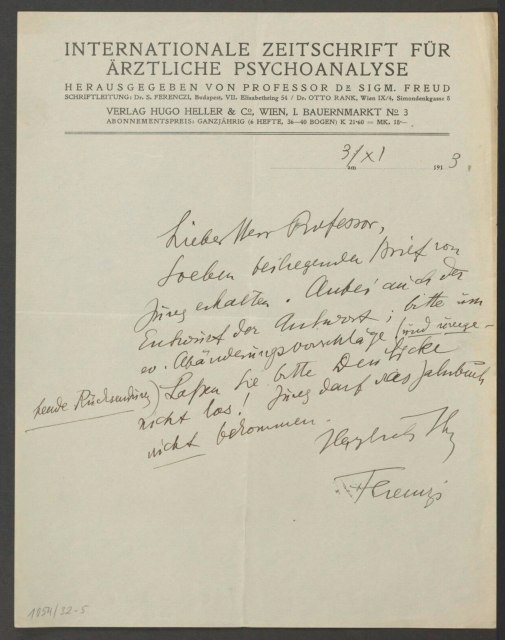 INTERNATIONALE ZEITSCHRIFT FÜR
ÄRZTLICHE PSYCHOANALYSE
HERAUSGEGEBEN VON PROFESSOR DR SIGM. FREUD
SCHRIFTLEITUNG: Dr. S. FERENCZI, Budapest, VII. Elisabethring 54 / Dr. OTTO RANK, Wien IX/4, Simondenkgasse 8
VERLAG HUGO HELLER & Co, WIEN, I. BAUERNMARKT No 3
ABONNEMENTSPREIS: GANZJÄHRIG (6 HEFTE, 36—40 BOGEN) K 21·60 = MK. 18·—
am 3/XI 1913.
Lieber Herr Professor,
Soeben beiliegenden Brief von
Jung erhalten. Anbei auch der
Entwurf der Antwort; bitte um
ev. Abänderungsvorschläge (und umge-
hende Rücksendung) Laßen Sie bitte Deuticke
nicht los! Jung darf das Jahrbuch
nicht bekommen.
Herzlichst Ihr
Ferenczi
1854/32-5